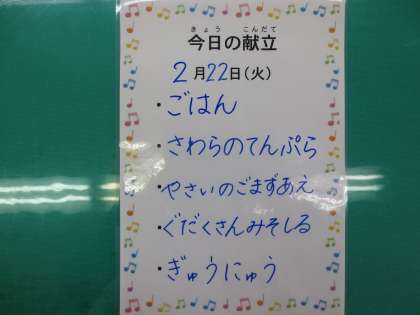 きょう こんだて
今日の献立
2月22日(火)
・ごはん
・さわらのてんぷら
・やさいのごまずあえ
・ぐだくさんみそしる
・ぎゅうにゅう